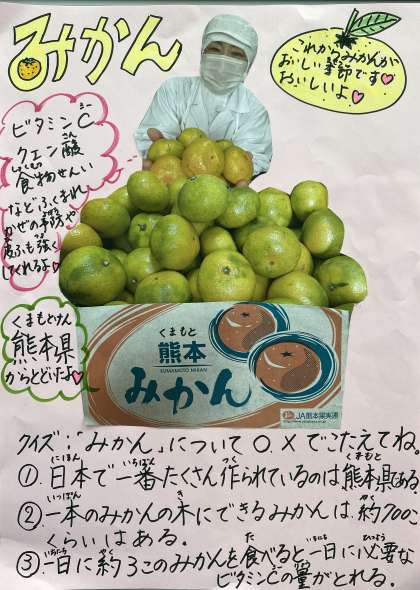 みかん
これからみかんが
おいしい季節です
おいしいよ
ビタミンC
シー
クエン酸
さん
食物せんい
しょくもつ
などふくまれ
かぜの予防や
よぼう
皮ふも強く
してくれるよ
くまもとけん
熊本県
からとどいたよ
くまもと
熊本
KUMAMOTO MIKAN
みかん
JA熊本果実連
クイズ:「みかん」について○、×でこたえてね。
にほん いちばん つく くまもと
①.日本で一番たくさん作られているのは熊本県ある
いっぽん き やく
②.一本のみかんの木にできるみかんは、約700こ
くらいはある。
いちにち やく た いちにち ひつよう
③一日に約3このみかんを食べると一日に必要な
ビタミンCの量がとれる。